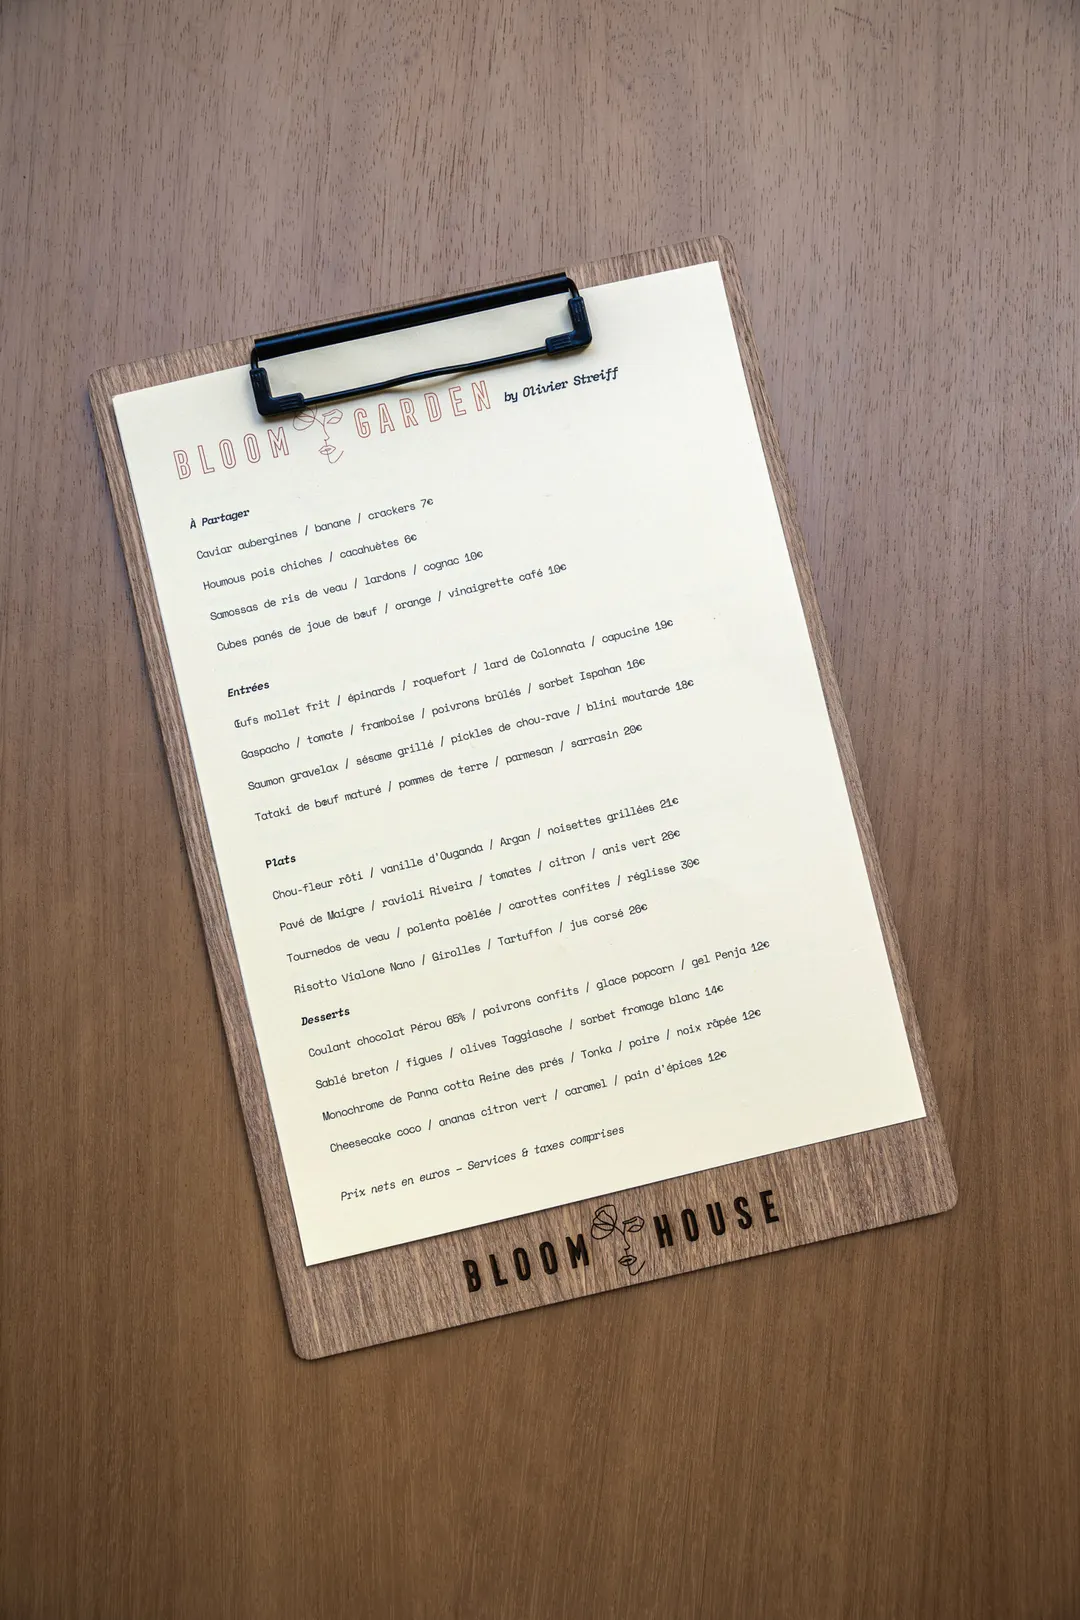 BLOOM GARDEN by Olivier Streiff
À Partager
Caviar aubergines / banane / crackers 7€
Houmous pois chiches / cacahuètes 6€
Samossas de ris de veau / lardons / cognac 10€
Cubes panés de joue de bœuf / orange / vinaigrette café 10€
Entrées
Œufs mollet frit / épinards / roquefort / lard de Colonnata / capucine 19€
Gaspacho / tomate / framboise / poivrons brûlés / sorbet Ispahan 16€
Saumon gravelax / sésame grillé / pickles de chou-rave / blini moutarde 18€
Tataki de bœuf maturé / pommes de terre / parmesan / sarrasin 20€
Plats
Chou-fleur rôti / vanille d'Ouganda / Argan / noisettes grillées 21€
Pavé de Maigre / ravioli Riveira / tomates / citron / anis vert 26€
Tournedos de veau / polenta poêlée / carottes confites / réglisse 30€
Risotto Vialone Nano / Girolles / Tartuffon / jus corsé 26€
Desserts
Coulant chocolat Pérou 65% / poivrons confits / glace popcorn / gel Penja 12€
Sablé breton / figues / olives Taggiasche / sorbet fromage blanc 14€
Monochrome de Panna cotta Reine des prés / Tonka / poire / noix râpée 12€
Cheesecake coco / ananas citron vert / caramel / pain d'épices 12€
Prix nets en euros – Services & taxes comprises
BLOOM HOUSE